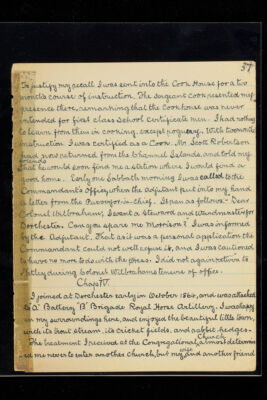 57
To justify my recall I was sent into the Cook House for a two
month's course of instruction. The sergeant cook resented my
presence there, remarking that the Cookhouse was never
intended for first class School certificate men. I had nothing
to learn from them in cooking, except roguery. With two months
instruction I was certified as a Cook. Mr. Scott Robertson
had now returned from the Channel Islands, and told my
friends that he would soon find me a station where I would find a
home. Early one Sabbath morning I was called to the
Commandant's office, when the Adjutant put into my hand
a letter from the Governor-in-chief. It ran as follows:- "Dear
Colonel Wilbraham, I want a Steward and Wardmaster for
Dorchester. Can you spare me Morrison? I was informed
by the Adjutant, that as it was a personal application the
Commandant could not well refuse it, and I was cautioned
to have no more to do with the press. I did not again return to
Netley during Colonel Wilbraham's tenure of office.
Chap IV.
I joined at Dorchester early in October 1860, and was attached
to "A" Battery "B" Brigade Royal Horse Artillery. I was happy
in my surroundings here, and enjoyed the beautiful little town,
with its trout stream, its cricket fields, and rabbit hedges.
The treatment I received at the Congregational Church almost determin-
ed me never to enter another church, but my wife and another friend